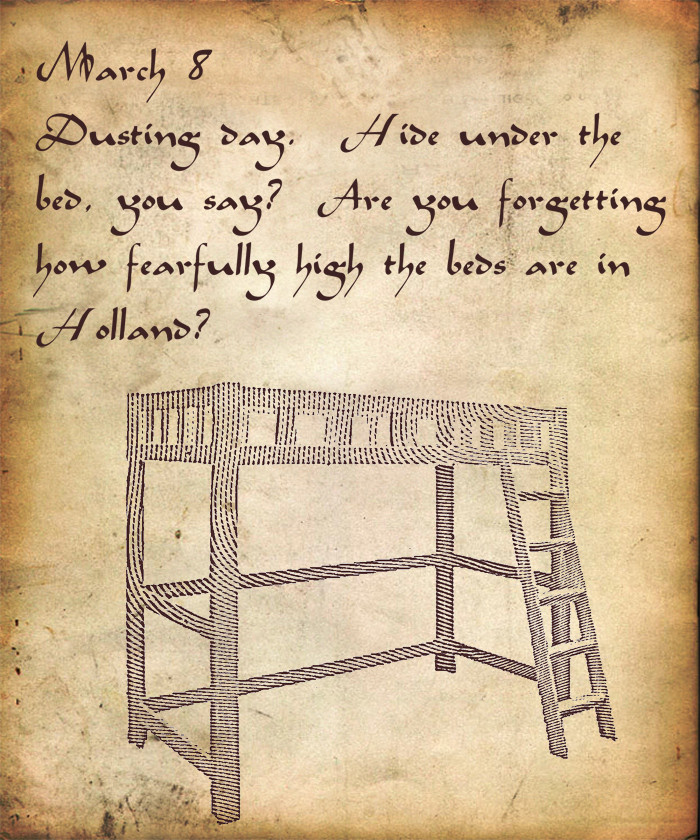 March 8
Dusting day. Hide under the
bed, you say? Are you forgetting
how fearfully high the beds are in
Holland?